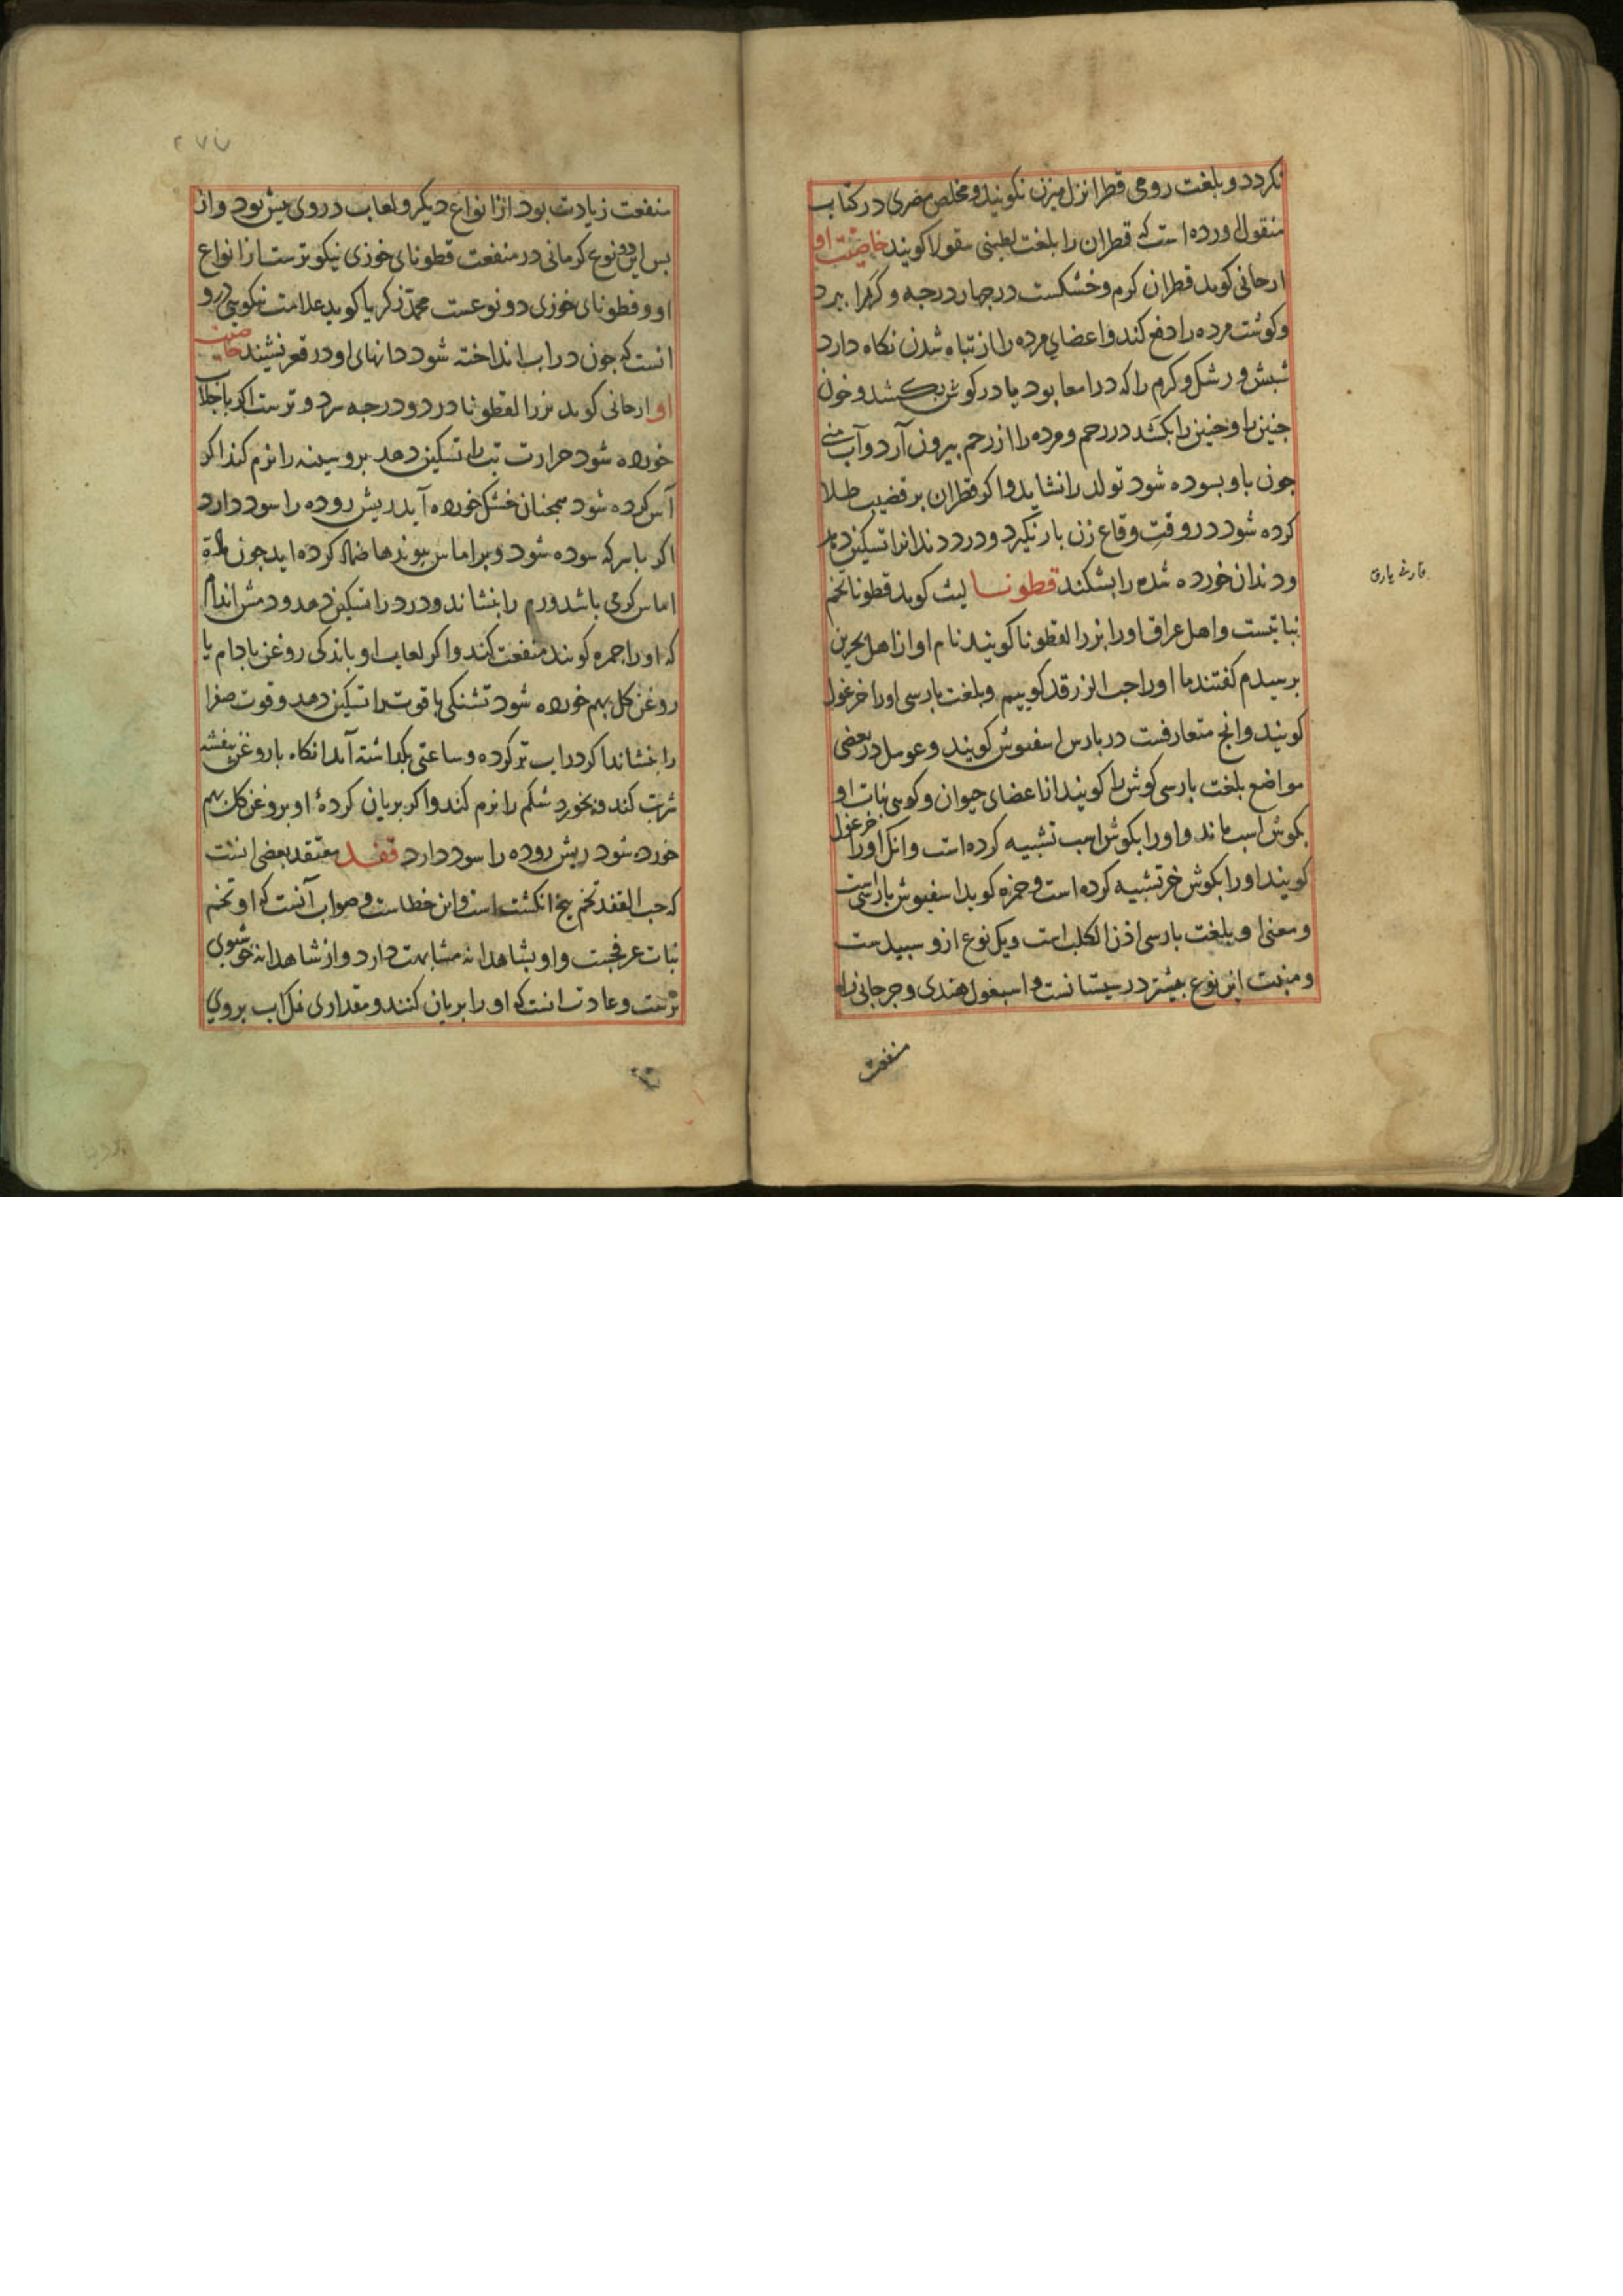 نکردد و بلغت رومی قطرانزل میزن نکویند و مخلص مصری در کتاب
منقول اورده است که قطران را بلغت لطینی سقولا کویند خاصیت او
ارجانی کوید قطران کرم و خشکست در جهار درجه و کرم را ببرد
و کوشت مرده را دفع کند و اعضای مرده را از تباه شدن نکاه دارد
شبش و رشک و کرم را که در امعا بود یا در کوش بکشد و خون
جنین را و جنین را بکشد در رحم و مرده را از رحم بیرون آرد و آب منی
جون باو بسوده شود تولد را نشاید و اکر قطران بر قضیب طلا
کرده شود در وقت وقاع زن بار نکیرد و درد دندانرا تسکین دهد
و دندان خورده شده را بشکند قطونا لیث کوید قطونا تخم
نباتیست و اهل عراق اورا بزر القطونا کویند نام او از اهل بحرین
برسیدم کفتند ما اورا حب الزرقد کوییم و بلغت بارسی اورا خرغول
کویند وانج متعارفست در بارس اسفیوش کویند و غوسل در بعضی
مواضع بلغت بارسی کوش را کویند از اعضای حیوان و کویی نبات او
بکوش اسب ماند و اورا بکوش اسب تشبیه کرده است و انک اورا خرغول
کویند اورا بکوش خر تشبیه کرده است و حمزه کوید اسفیوش بارسیست
و معنی او بلغت بارسی اذن الکلب است و یک نوع ازو سبیدست
و منبت این نوع بیشتر در سیستانست و اسبغول هندی و جرجانی را
منفعت
۲۷۷
منفعت زیادت بود از انواع دیکر و لعاب در وی بیش بود و از
بس این دو نوع کرمانی در منفعت قطونای خوزی نیکوترست از انواع
او و قطونای خوزی دو نوعست محمد زکریا کوید علامت نیکویی در و
انست که جون در اب انداخته شود دانهای او در قعر نشیند خاصیت
او ارجانی کوید بزر القطونا در دو درجه سرد و ترست اکر با جلاب
خورده شود حرارت تب را تسکین دهد بر و سینه را نرم کند اکر
آس کرده شود همجنان خشک خورده آید ریش روده را سود دارد
اکر با سرکه سوده شود و بر اماس بیوندها ضماد کرده اید جون مادة
اماس کرمی باشد ورم را بنشاند و درد را تسکین دهد و دمش اندام
که اورا جمره کویند منفعت کند و اکر لعاب او باندکی روغن بادام یا
روغن کل بهم خورده شود تشنکی با قوت را تسکین دهد و قوت صفرا
را بنشاند اکر در اب تر کرده و ساعتی بکداشته آید انکاه با روغن بنفشه
شربت کند و بخورد شکم را نرم کند و اکر بریان کردهٔ او بروغن کل بهم
خورده شود ریش روده را سود دارد قفد معتقد بعضی انست
که حب الفقد تخم بنج انکشت است و این خطاست و صواب آنست که او تخم
نبات عرفجست و او بشاهدانه مشابهت دارد و از شاهدانه خوشبوی
ترست و عادت انست که او را بریان کنند و مقداری نمک اب بر وی